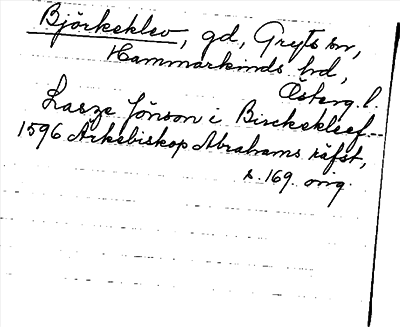 Björkeklev, gd, Gryts sn,
Hammarkinds hd,
Österg. l.
Lasze Jönson i Birckekleef --
1596 Ärkebiskop Abrahams räfst,
s. 169. orig.